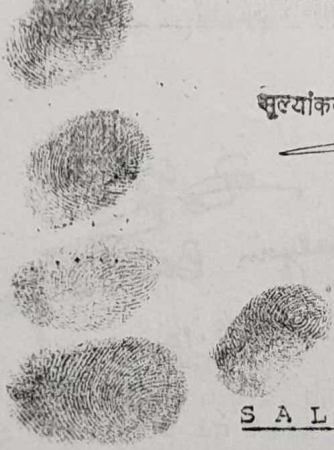 मूल्यांक
S A L